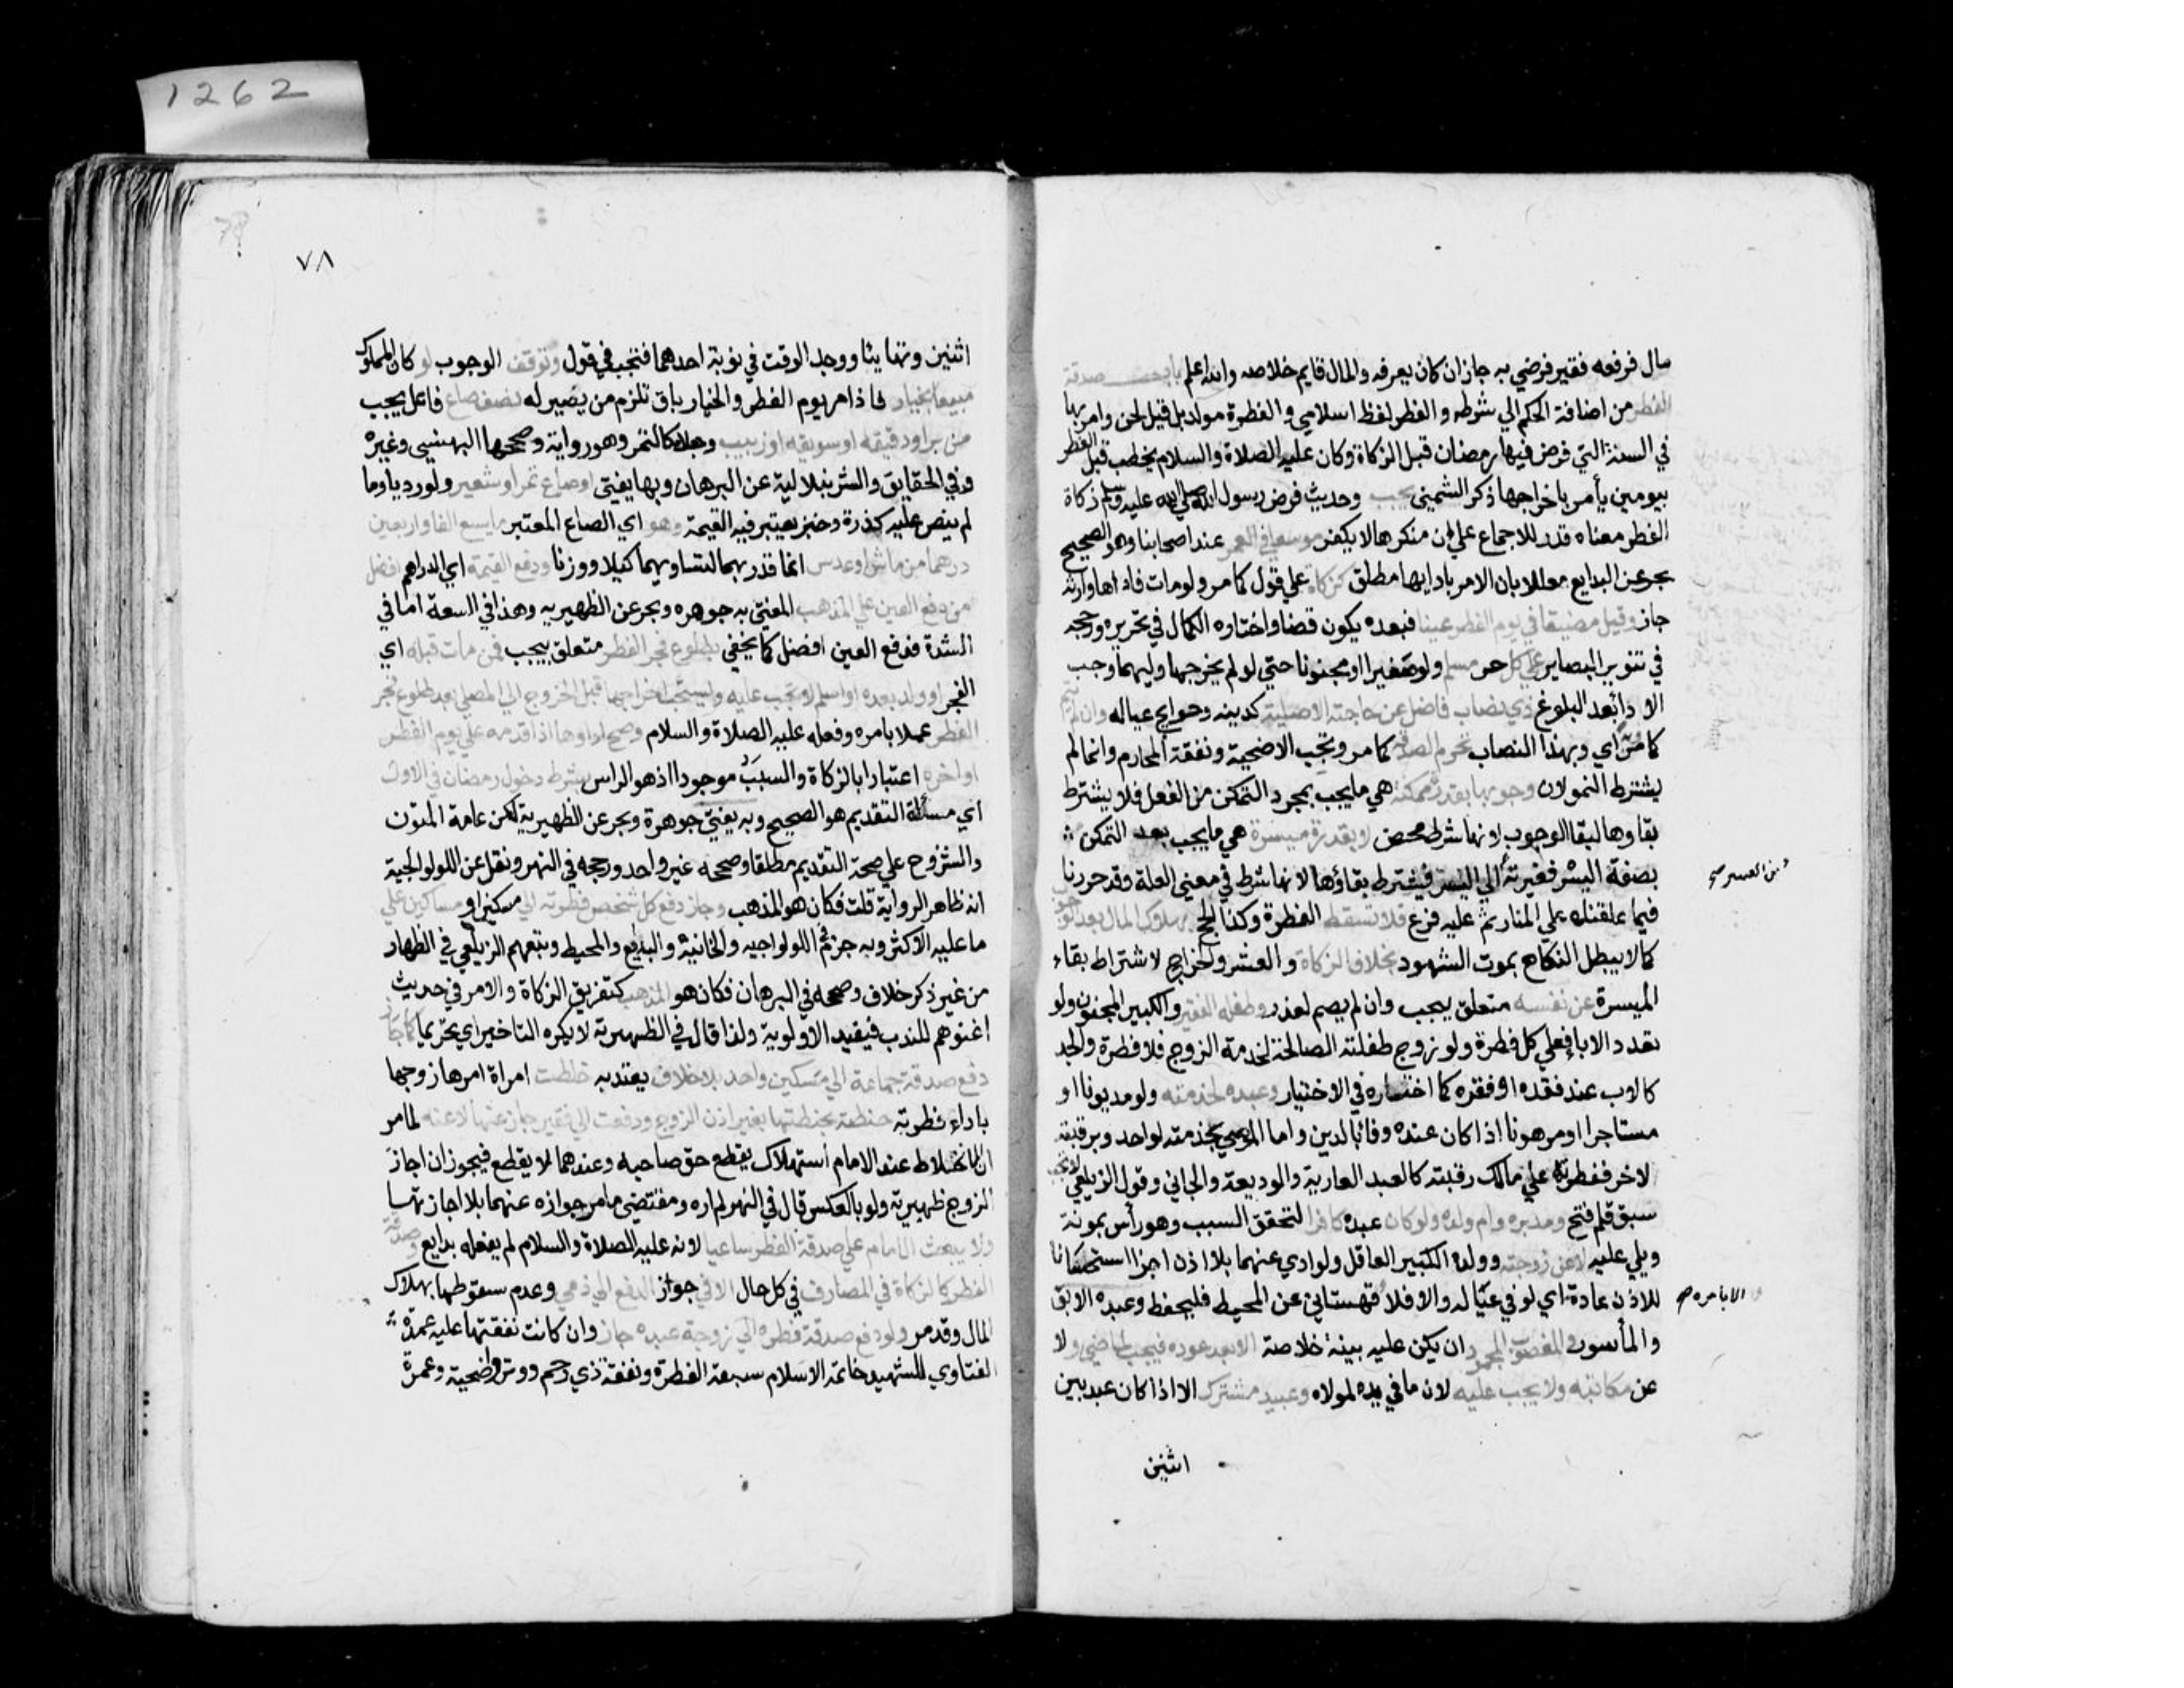 مال فرفعه فقير فرضي به جاز ان كان يعرفه والمال قايم خلاصه والله اعلم باب صدقة
الفطر من اضافة الحكم الي شرطه والفطر لفظ اسلامي والفطرة مولد بل قيل لحن وامر بها
في السنة التي فرض فيها رمضان قبل الزكاة وكان عليه الصلاة والسلام يخطب قبل الفطر
بيومين يأمر باخراجها ذكر الشمني يجب وحديث فرض رسول الله صلي الله عليه وسلم زكاة
الفطر معناه قدر للاجماع علي ان منكرها لا يكفر موسعا في العمر عند اصحابنا وهو الصحيح
بحر عن البدايع معللا بان الامر بادايها مطلق كزكاة علي قول كما مر ولو مات فاداها وارثه
جاز وقيل مضيقا في يوم الفطر عينا فبعده يكون قضا واختاره الكمال في تحريره ورجحه
في تنوير البصاير علي كل حر مسلم ولو صغيرا او مجنونا حتي لو لم يخرجها وليهما وجب
الادا بعد البلوغ ذي نصاب فاضل عن حاجته الاصلية كدينه وحوايج عياله وان لم ينم
كما مر اي وبهذا النصاب تحرم الصدقة كما مر وتجب الاضحية ونفقة المحارم وانما لم
يشترط النمو لان وجوبها بقدرة ممكنة هي ما يجب بمجرد التمكن من الفعل فلا يشترط
بقاوها لبقا الوجوب لانها شرط محض لا بقدرة ميسرة هي ما يجب بعد التمكن
بصفة اليسر فغيرته الي اليسر فيشترط بقاؤها لانها شرط في معني العلة وقد حررنا
من العسر صح
فيما علقناه علي المنار ثم عليه فرع فلا تسقط الفطرة وكذا الحج بهلاك المال بعد الوجوب
كما لا يبطل النكاح بموت الشهود بخلاف الزكاة والعشر والخراج لاشتراط بقاء
الميسرة عن نفسه متعلق بيجب وان لم يصم لعذر وطفله الفقير والكبير المجنون ولو
تعدد الاباء فعلي كل فطرة ولو زوج طفلته الصالحة لخدمة الزوج فلا فطرة والجد
كالاب عند فقده او فقره كما اختاره في الاختيار وعبده لخدمته ولو مديونا او
مستاجرا او مرهونا اذا كان عنده وفا بالدين واما الموصي بخدمته لواحد وبرقبته
لاخر ففطرته علي مالك رقبته كالعبد العارية والوديعة والجاني وقول الزيلعي لا تجب
سبق قلم فتح ومدبره وام ولده ولو كان عبده كافرا لتحقق السبب وهو رأس يمونه
ويلي عليه لا عن زوجته وولده الكبير العاقل ولو ادي عنهما بلا اذن اجزا استحسانا
للاذن عادة اي لو في عياله والا فلا قهستاني عن المحيط فليحفظ وعبده الابق
الا بامره صح
والمأسور والمغصوب المجحود ان يكن عليه بينة خلاصة الا بعد عوده فيجب لما مضي ولا
عن مكاتبه ولا يجب عليه لان ما في يده لمولاه وعبيد مشترك الا اذا كان عبد بين
اثنين
٧٨
اثنين وتهايئا ووجد الوقت في نوبة احدهما فتجب في قول وتوقف الوجوب لو كان المملوك
مبيعا بخيار فاذا مر يوم الفطر والخيار باق تلزم من يصير له نصف صاع فاعل يجب
من بر او دقيقه او سويقه او زبيب وجعلاه كالتمر وهو رواية وصححها البهنسي وغيره
وفي الحقايق والشرنبلالية عن البرهان وبها يفتي او صاع تمر او شعير ولو رديا وما
لم ينص عليه كذرة وخبز يعتبر فيه القيمة وهو اي الصاع المعتبر ما يسع الفا واربعين
درهما من ماش او عدس انما قدر بهما لتساويهما كيلا ووزنا ودفع القيمة اي الدراهم افضل
من دفع العين علي المذهب المفتي به جوهره وبحر عن الظهيريه وهذا في السعة اما في
الشدة فدفع العين افضل كما يخفي بطلوع فجر الفطر متعلق بيجب فمن مات قبله اي
الفجر او ولد بعده او اسلم لا تجب عليه ويستحب اخراجها قبل الخروج الي المصلي بعد طلوع فجر
الفطر عملا بامره وفعله عليه الصلاة والسلام وصح اداوها اذا قدمه علي يوم الفطر
او اخره اعتبارا بالزكاة والسبب موجود اذ هو الراس بشرط دخول رمضان في الاول
اي مسألة التقديم هو الصحيح وبه يفتي جوهرة وبحر عن الظهيرية لكن عامة المتون
والشروح علي صحة التقديم مطلقا وصححه غير واحد ورجحه في النهر ونقل عن اللولوالجية
انه ظاهر الرواية قلت فكان هو المذهب وجاز دفع كل شخص فطرته الي مسكين او مساكين علي
ما عليه الاكثر وبه جزم في اللولواجيه والخانية والبدايع والمحيط وتبعهم الزيلعي في الظهار
من غير ذكر خلاف وصححه في البرهان فكان هو المذهب كتفريق الزكاة والامر في حديث
اغنوهم للندب فيفيد الاولوية ولذا قال في الظهيرية لا يكره التاخير اي تحريما كما جاز
دفع صدقة جماعة الي مسكين واحد بلا خلاف يعتد به خلطت امراة امرها زوجها
باداء فطرته حنطته بحنطتها بغير اذن الزوج ودفعت الي فقير جاز عنها لا عنه لما مر
ان الخلاط عند الامام استهلاك يقطع حق صاحبه وعندهما لا يقطع فيجوز ان اجاز
الزوج ظهيرية ولو بالعكس قال في النهر لم اره ومقتضي ما مر جوازه عنهما بلا اجازتها
ولا يبعث الامام علي صدقة الفطر ساعيا لانه عليه الصلاة والسلام لم يفعله بدايع وصدقة
الفطر كالزكاة في المصارف في كل حال الا في جواز الدفع الي ذمي وعدم سقوطها بهلاك
المال وقد مر ولو دفع صدقة فطره الي زوجة عبده جاز وان كانت نفقتها عليه عمدة
الفتاوي للشهيد خاتمة الاسلام سبعة الفطرة ونفقة ذي رحم ووتر واضحية وعمرة
1262